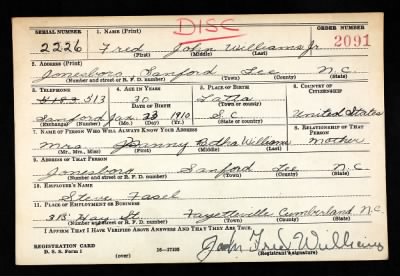 DISC
SERIAL NUMBER 1. NAME (Print) ORDER NUMBER
2226 Fred John Williams Jr 2091
(First) (Middle) (Last)
2. ADDRESS (Print)
Jonesboro Sanford Lee N.C.
(Number and street or R. F. D. number) (Town) (County) (State)
3. TELEPHONE 4. AGE IN YEARS 5. PLACE OF BIRTH 6. COUNTRY OF CITIZENSHIP
513 30 Latta
DATE OF BIRTH
Sanford Jan. 23 1910 S.C. United States
(Exchange) (Number) (Mo.) (Day) (Yr.) (State or country)
7. NAME OF PERSON WHO WILL ALWAYS KNOW YOUR ADDRESS 8. RELATIONSHIP OF THAT PERSON
Mrs. Botha William Mother
(Mr., Mrs., Miss) (First) (Middle) (Last)
9. ADDRESS OF THAT PERSON
Jonesboro Sanford Lee N.C.
(Number and street or R. F. D. number) (Town) (County) (State)
10. EMPLOYER'S NAME
Steve
11. PLACE OF EMPLOYMENT OR BUSINESS
313 Hay St. Fayetteville Cumberland N.C.
(Number and street or R. F. D. number) (Town) (County) (State)
I AFFIRM THAT I HAVE VERIFIED ABOVE ANSWERS AND THAT THEY ARE TRUE.
REGISTRATION CARD
D. S. S. Form 1 16—17105 John Fred Williams
(Registrant's signature)